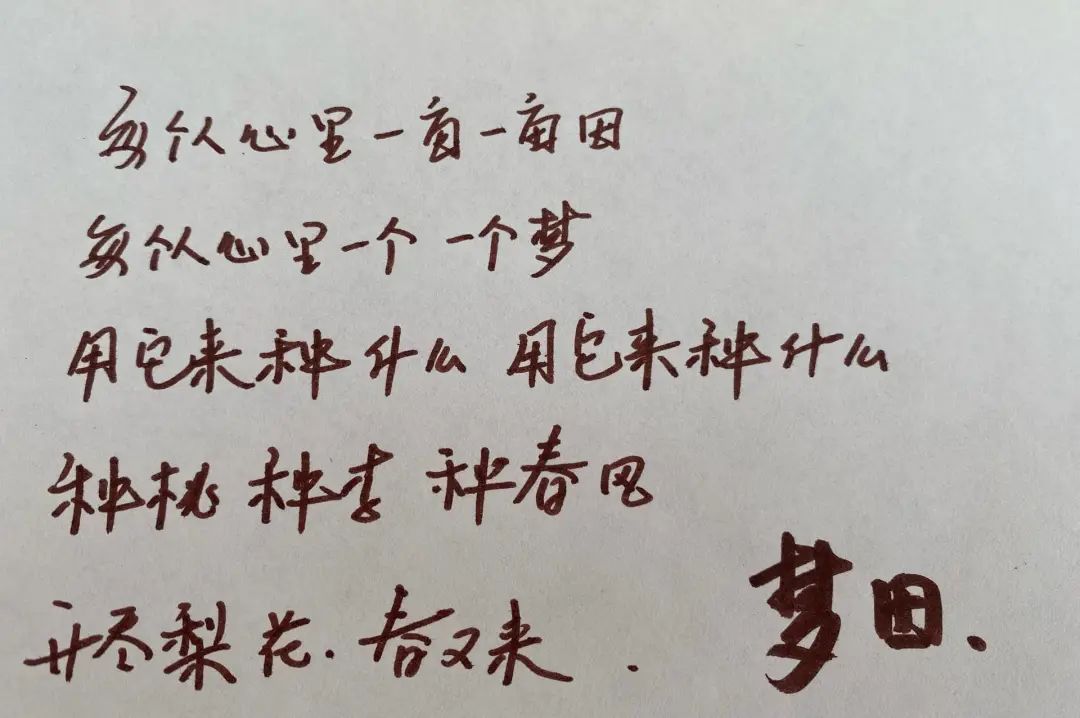 每个人心里一亩一亩田
每个人心里一个 一个梦
用它来种什么 用它来种什么
种桃 种李 种春风
开尽梨花.春又来.
梦田.